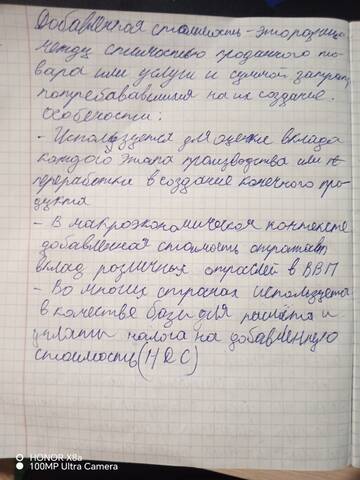 Добавленная стоимость - это разница
между стоимостью проданного то-
вара или услуги и суммой затрат,
потребовавшимся на их создание.
Особености:
- Используется для оценки вклада
каждого этапа производства или
переработки в создание конечного про-
дукта
- В макроэкономическом контексте
добавленная стоимость отражает
вклад различных отраслей в ВВП
- Во многих странах используется
в качестве базы для расчёта и
уплаты налога на добавленную
стоимость (НДС)
HONOR X8a
100MP Ultra Camera